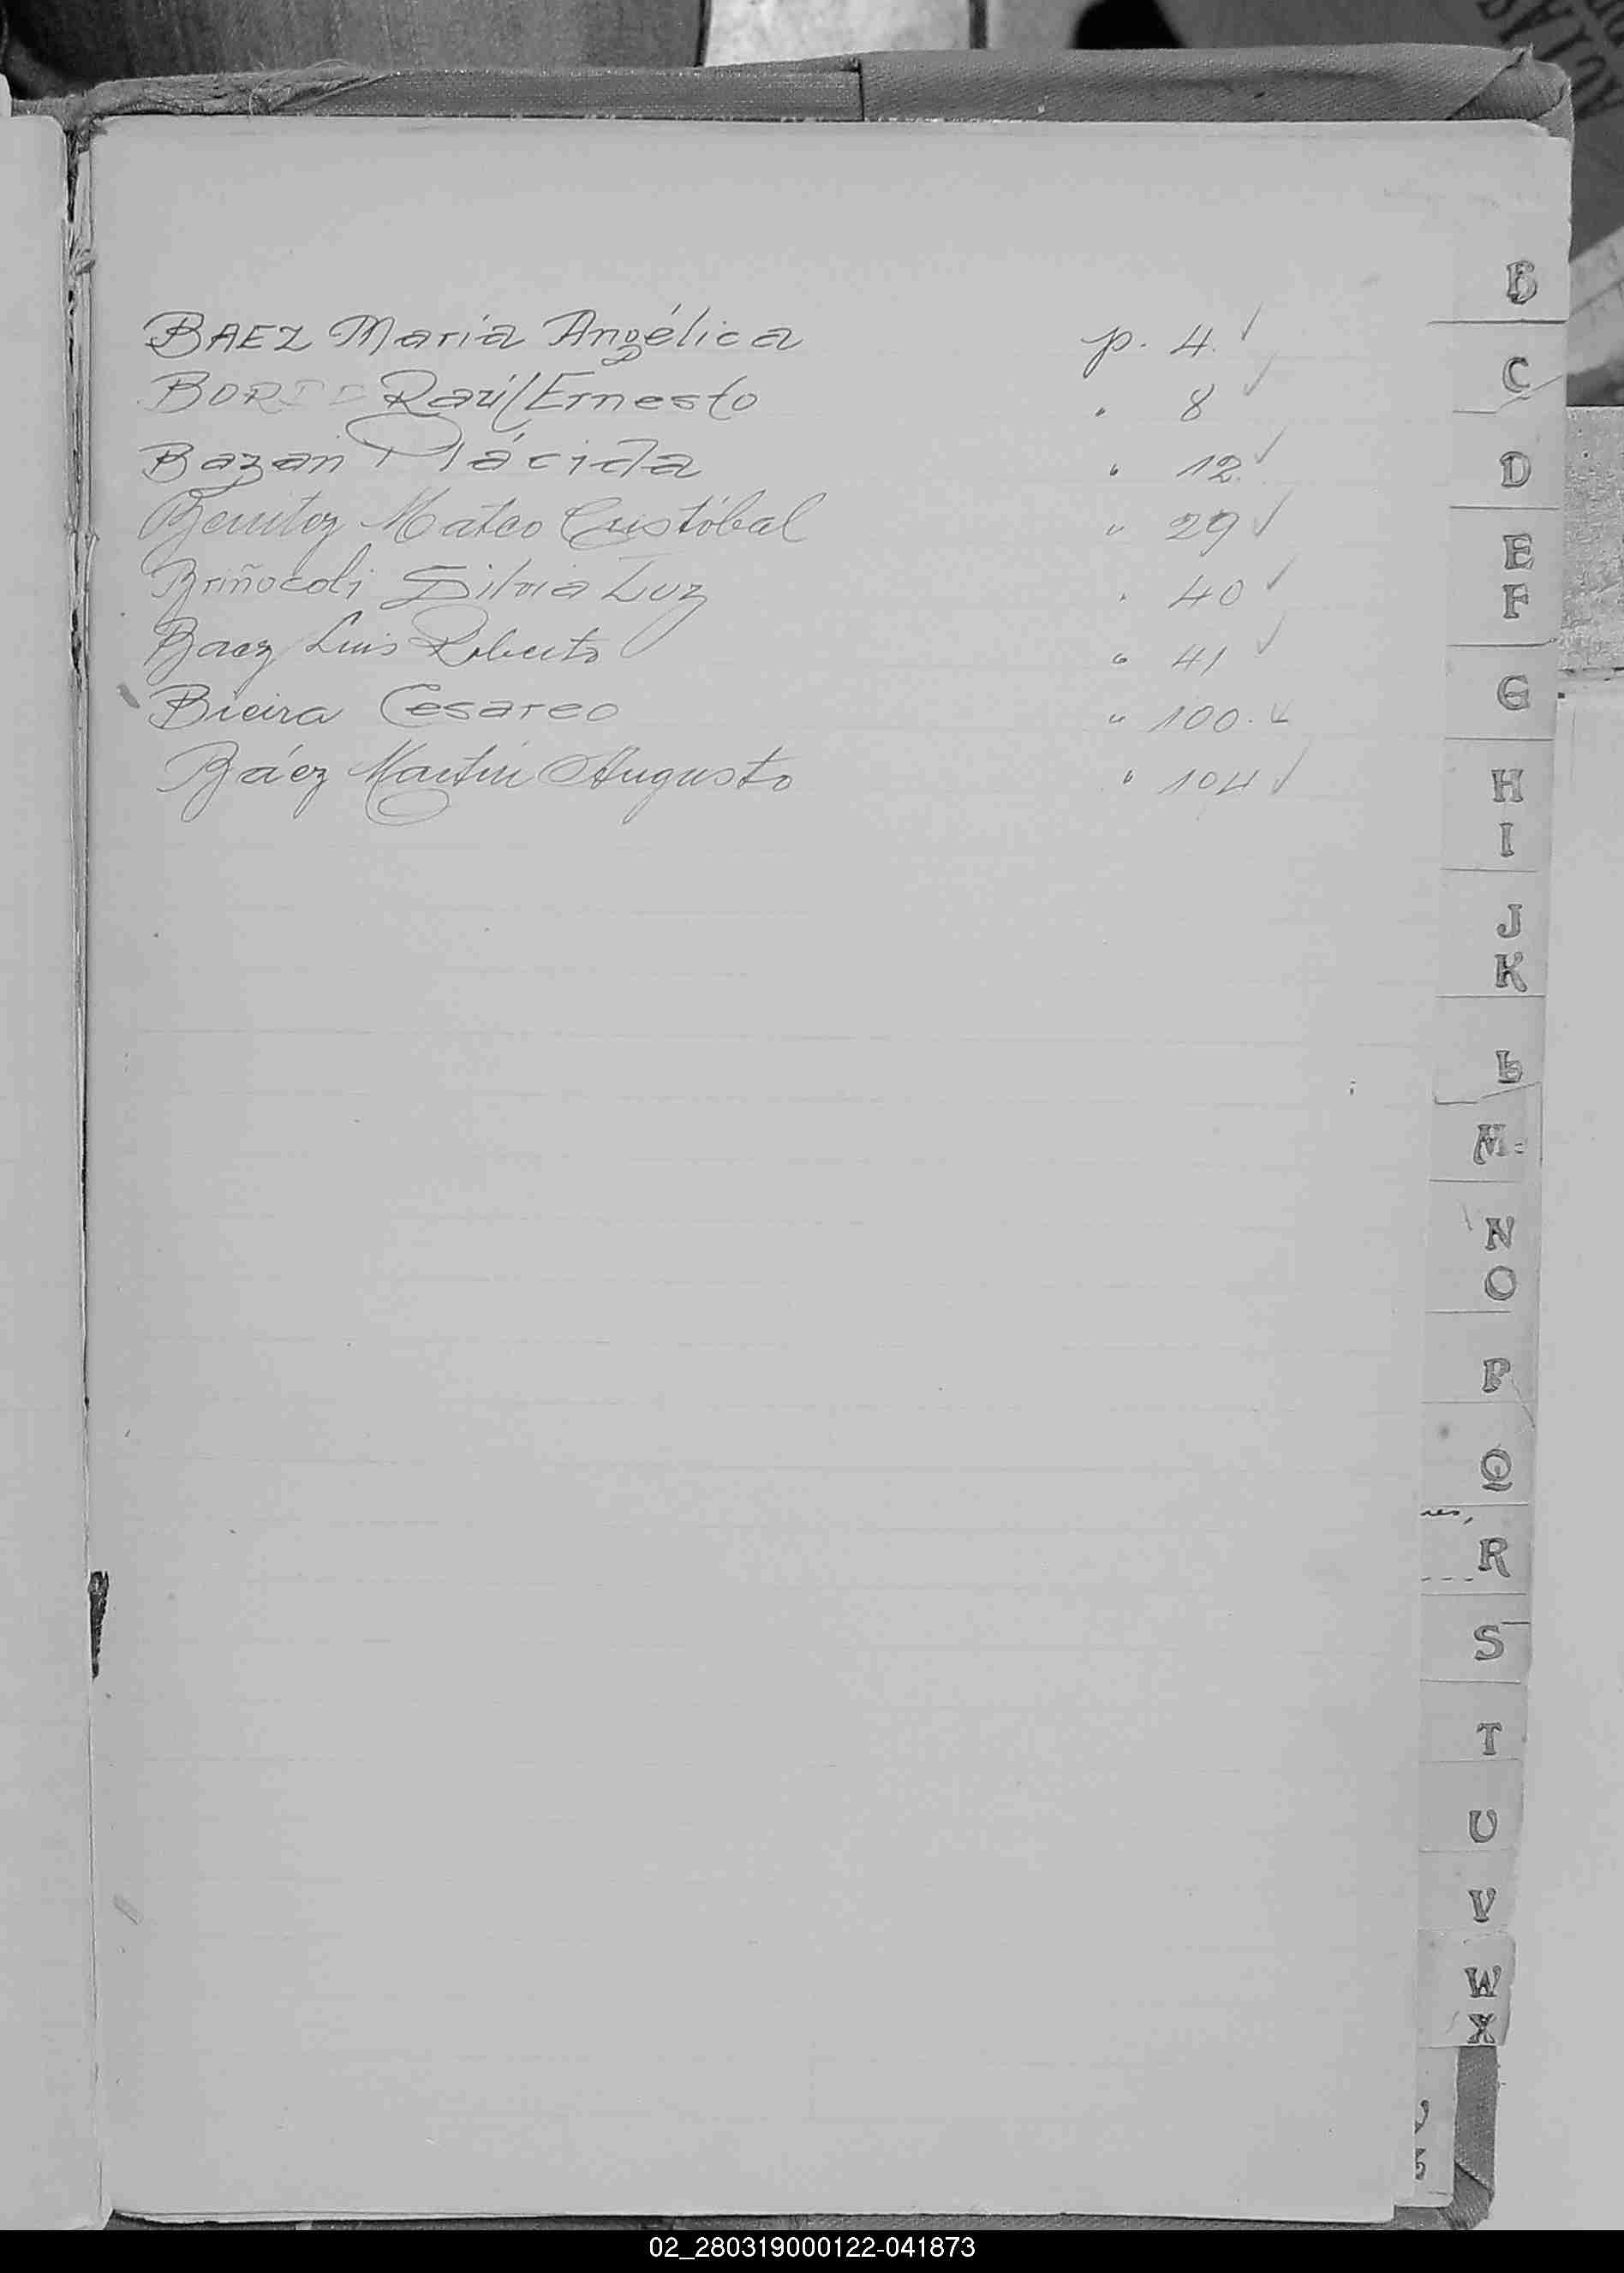 BAEZ María Angélica p. 4. ✓
Raúl Ernesto " 8 ✓
Bazan Plácida " 12. ✓
Benítez Mateo Cristóbal " 29 ✓
Briñocoli Silvia Luz " 40 ✓
Baez Luis Roberto " 41 ✓
Bieira Cesareo " 100. ✓
Báez Martín Augusto " 104 ✓
B
C
D
E
F
G
H
I
J
K
L
M
N
O
P
Q
R
S
T
U
V
W
X
02_280319000122-041873